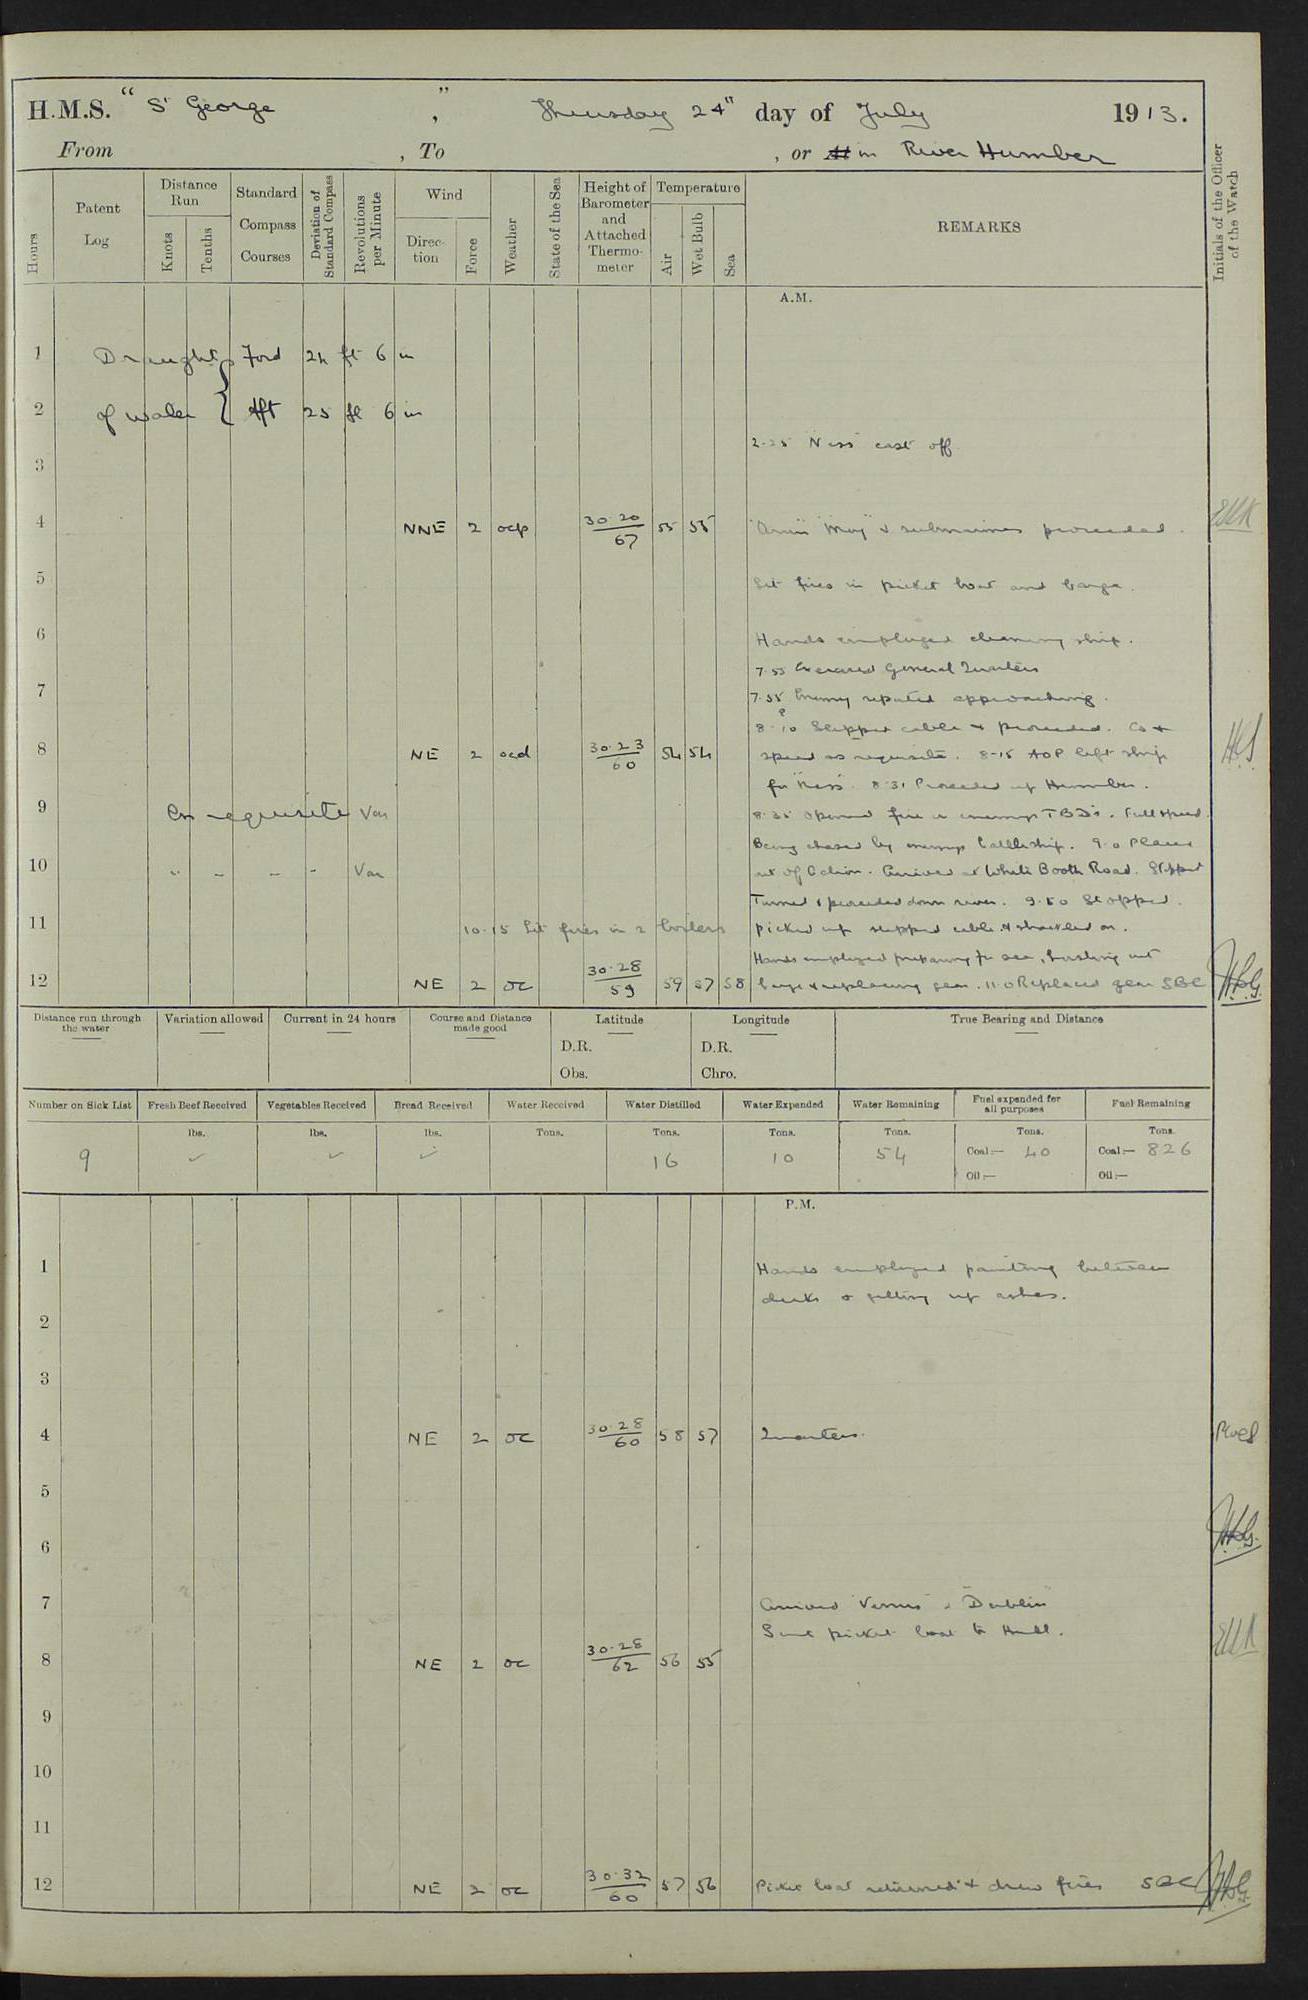 H.M.S. "St George", Thursday 24th day of July 1913.
From , To , or At in River Humber
Hours
Patent Log
Distance Run
Knots
Tenths
Standard Compass Courses
Deviation of Standard Compass
Revolutions per Minute
Wind
Direction
Force
Weather
State of the Sea
Height of Barometer and Attached Thermometer
Temperature
Air
Wet Bulb
Sea
REMARKS
Initials of the Officer of the Watch
A.M.
1 Draught Ford 24 ft 6 in
2 of water Aft 25 ft 6 in
2.25 "Ness" cast off
3
4 NNE 2 ocp 30.20 67 55 55 "May" & submarines proceeded.
5 Lit fires in picket boat and barge.
6 Hands employed cleaning ship.
7.55 Exercised General Quarters
7
7.55 Enemy reported approaching.
8.10 Slipped cable & proceeded. Co &
8 NE 2 ocd 30.23 60 54 54 speed as requisite. 8-15 AOP left ship
for "Ness". 8.31 Proceeded up Humber.
9 Co requisite Var 8.35 Opened fire on enemys TBD's. Full speed.
Being chased by enemys battleship. 9.0 Placed
10 " " " " Var out of Action. Arrived at White Booth Road. Stopped
Turned & proceeded down river. 9.50 Stopped.
11 10.15 Lit fires in 2 boilers picked up slipped cable & shackled on.
Hands employed preparing for sea,
12 NE 2 oc 30.28 59 59 57 58 & replacing gear. 11.0 Replaced gear SBC
Distance run through the water
Variation allowed
Current in 24 hours
Course and Distance made good
Latitude
D.R.
Obs.
Longitude
D.R.
Chro.
True Bearing and Distance
Number on Sick List
Fresh Beef Received
Vegetables Received
Bread Received
Water Received
Water Distilled
Water Expended
Water Remaining
Fuel expended for all purposes
Fuel Remaining
lbs. lbs. lbs. Tons. Tons. Tons. Tons. Tons. Tons.
9 ✓ ✓ ✓ 16 10 54 Coal:— 40 Coal:— 826
Oil:— Oil:—
P.M.
1 Hands employed painting between
decks & getting up ashes.
2
3
4 NE 2 oc 30.28 60 58 57 Quarters.
5
6
7 Arrived "Venus" & "Dublin"
Sent picket boat to Hull.
8 NE 2 oc 30.28 62 56 55
9
10
11
12 NE 2 oc 30.32 60 57 56 Picket boat returned & drew fires SBC